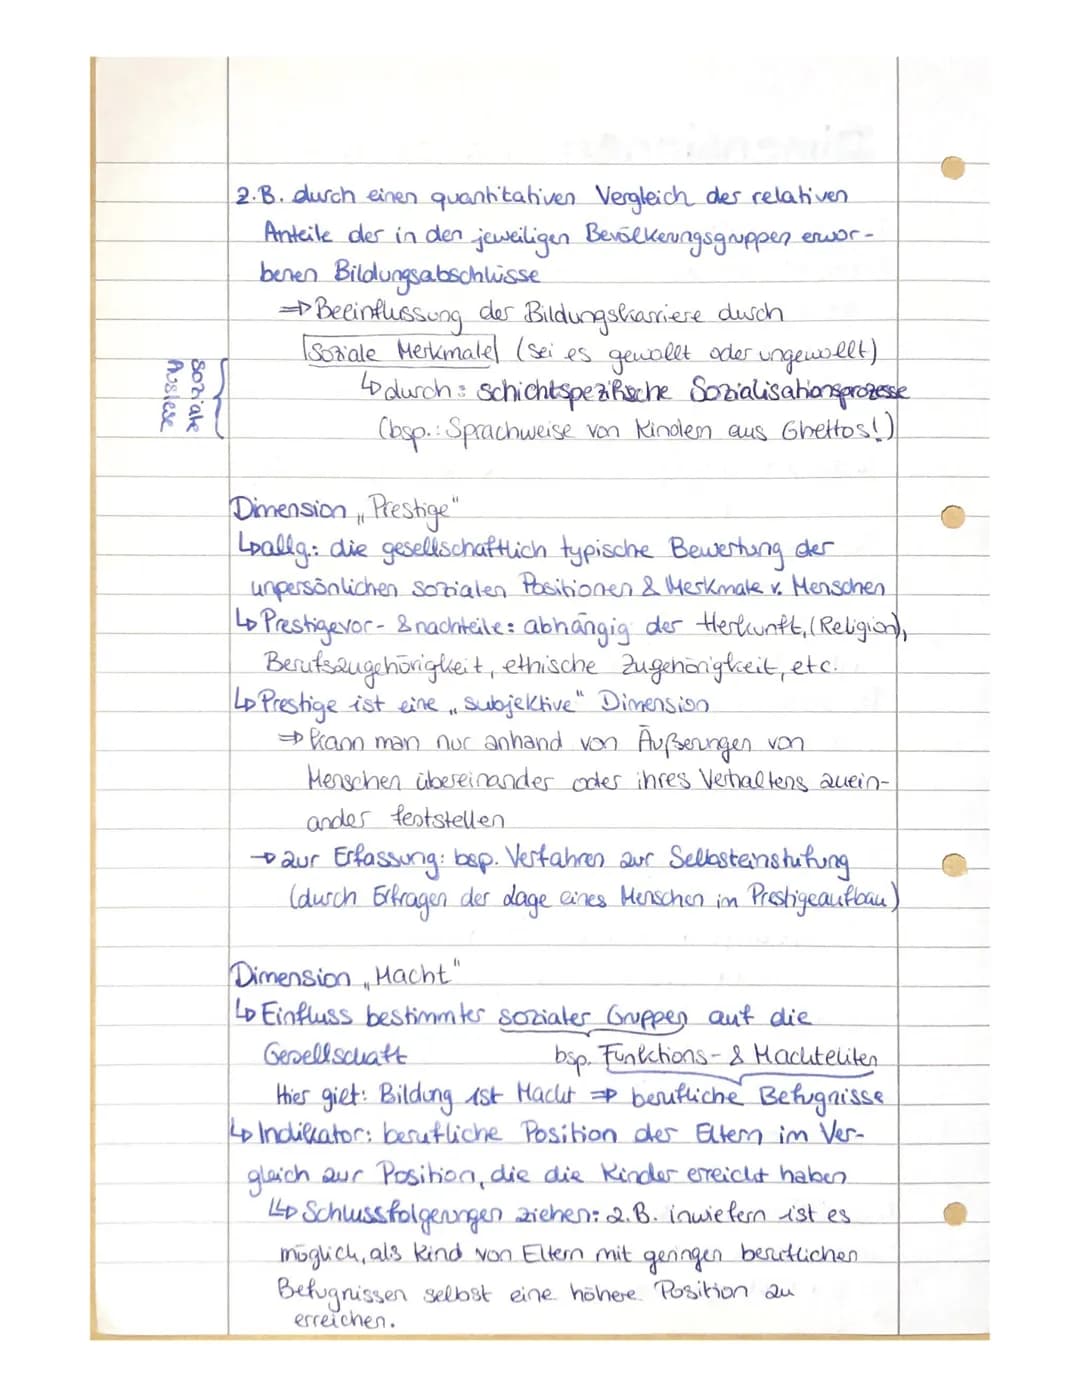 z.B. durch einen quantitativen Vergleich der relativen
Anteile der in den jeweiligen Bevölkerungsgruppen erwor-
benen Bildungsabschlüsse
⇒ Beeinflussung der Bildungskarriere durch
Soziale Merkmale (sei es gewollt oder ungewollt)
↳ durch: schichtspezifische Sozialisationsprozesse
(bsp.: Sprachweise von Kindern aus Ghettos!)
Soziale
Auslese
Dimension „Prestige"
↳ allg.: die gesellschaftlich typische Bewertung der
unpersönlichen sozialen Positionen & Merkmale v. Menschen
↳ Prestigevor- & nachteile: abhängig der Herkunft, (Religion),
Berufszugehörigkeit, ethische Zugehörigkeit, etc.
↳ Prestige ist eine „subjektive" Dimension
⇒ kann man nur anhand von Äußerungen von
Menschen übereinander oder ihres Verhaltens zuein-
ander feststellen
→ zur Erfassung: bsp. Verfahren zur Selbsteinstufung
(durch Erfragen der Lage eines Menschen im Prestigeaufbau)
Dimension „Macht"
↳ Einfluss bestimmter sozialer Gruppen auf die
Gesellschaft bsp. Funktions- & Machteliten
Hier gilt: Bildung ist Macht ⇒ berufliche Befugnisse
↳ Indikator: berufliche Position der Eltern im Ver-
gleich zur Position, die die Kinder erreicht haben
↳ Schlussfolgerungen ziehen: z.B. inwiefern ist es
möglich, als Kind von Eltern mit geringen beruflichen
Befugnissen selbst eine höhere Position zu
erreichen.